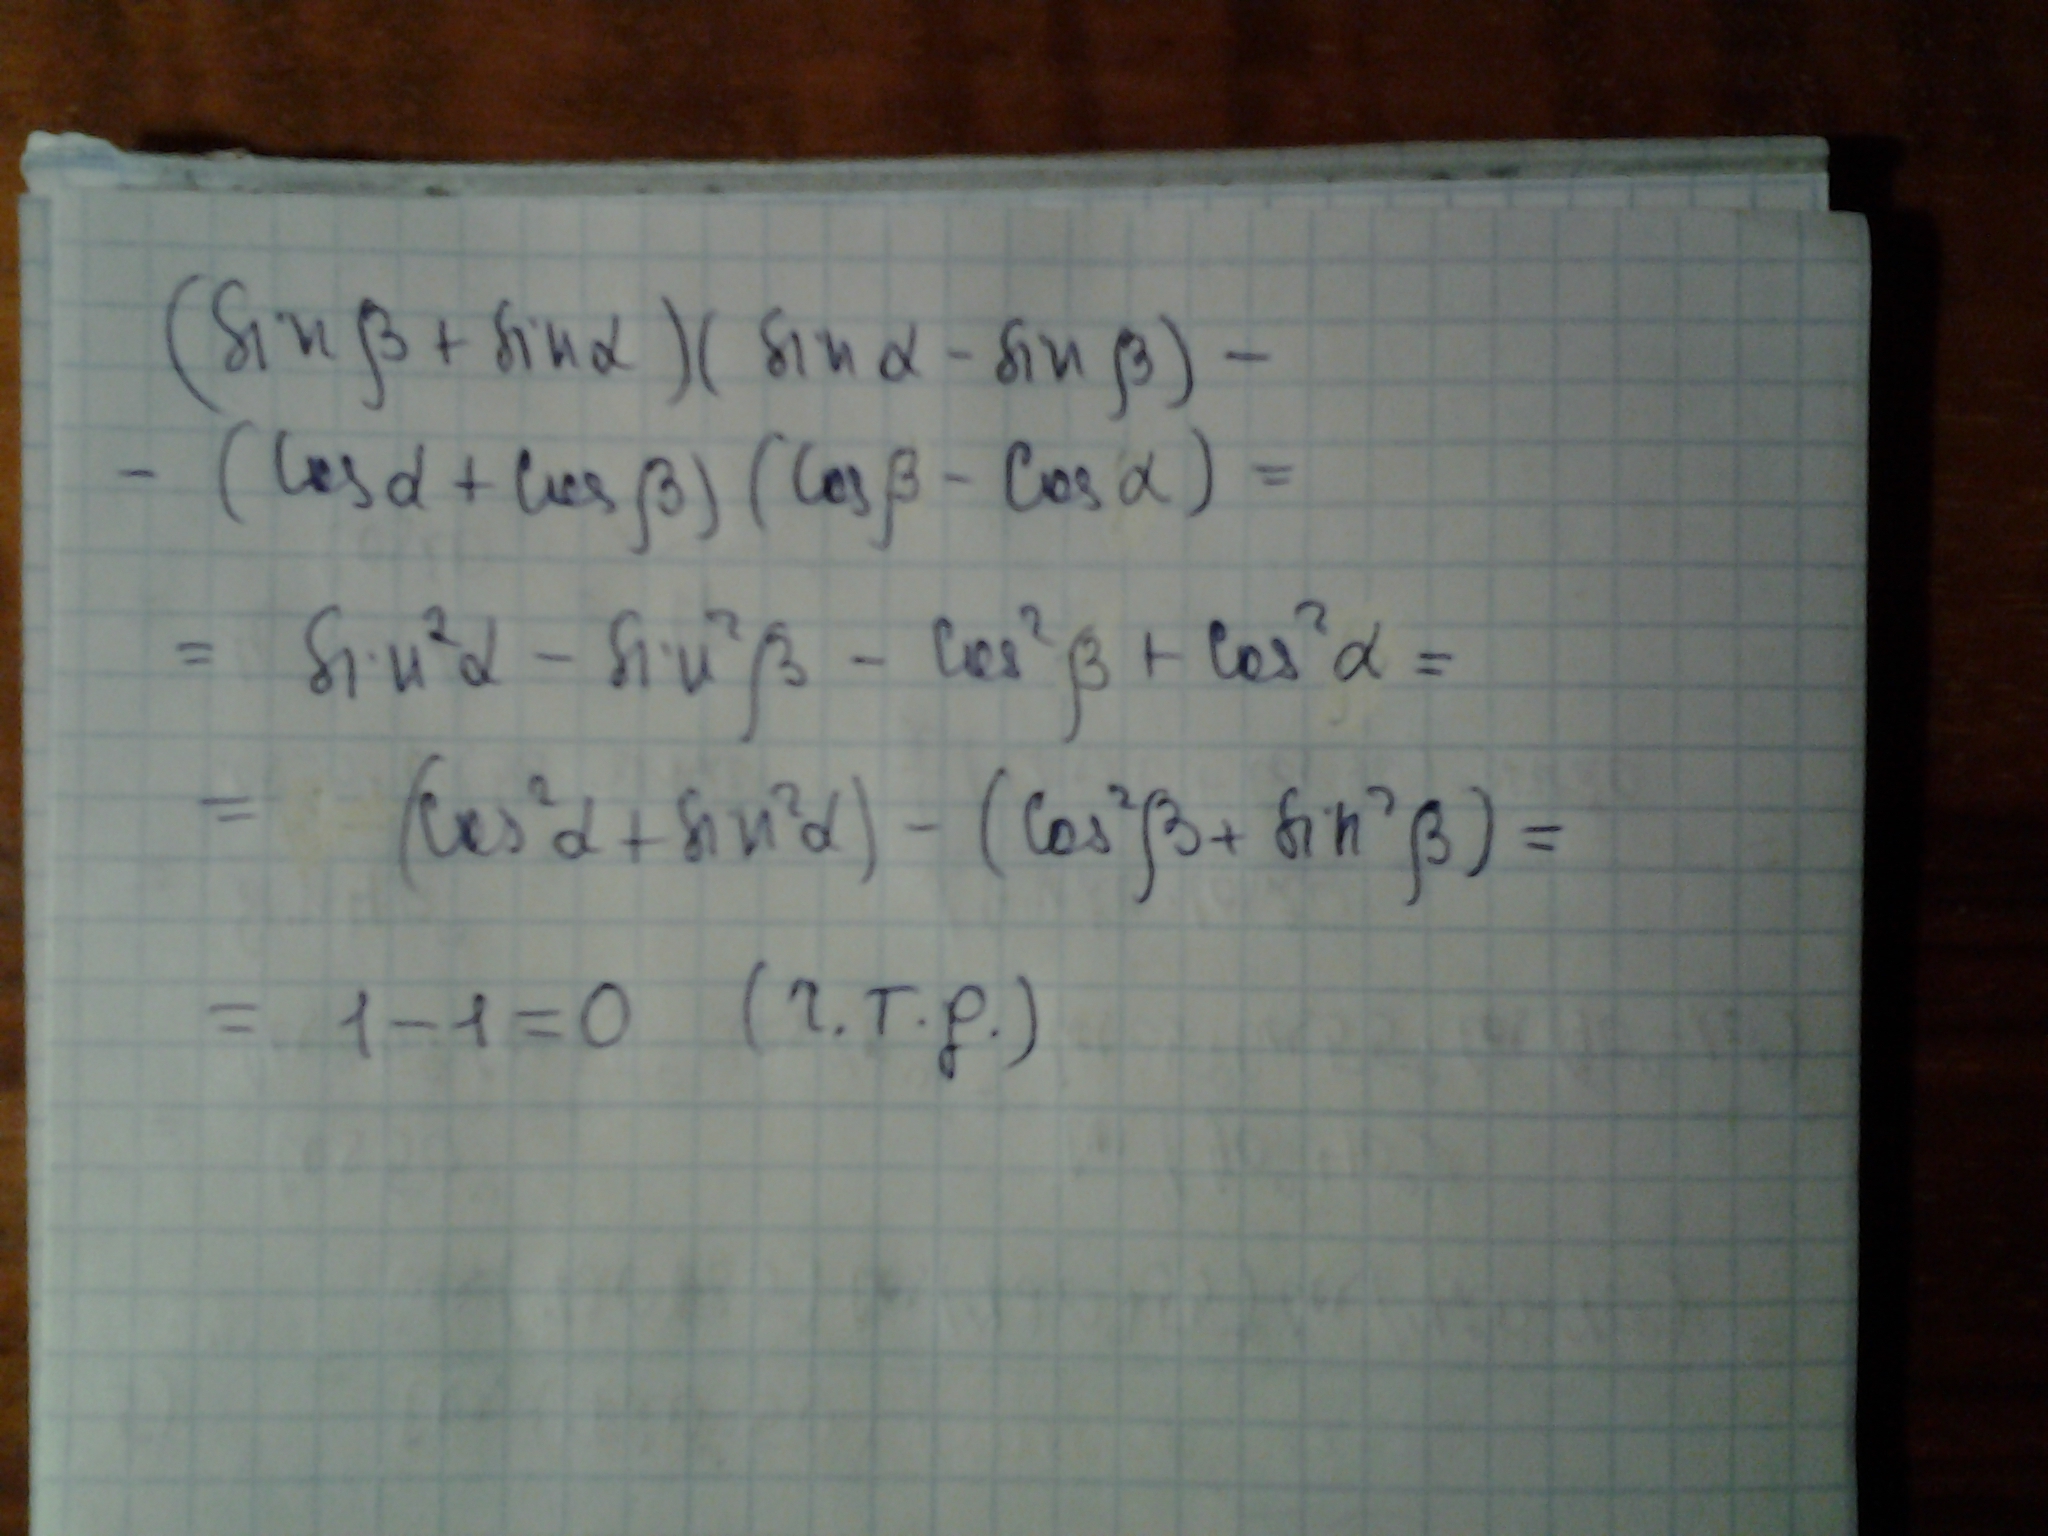 (sin β + sin α)(sin α - sin β) -
- (cos α + cos β)(cos β - cos α) =
= sin²α - sin²β - cos²β + cos²α =
= (cos²α + sin²α) - (cos²β + sin²β) =
= 1 - 1 = 0 (ч.т.д.)